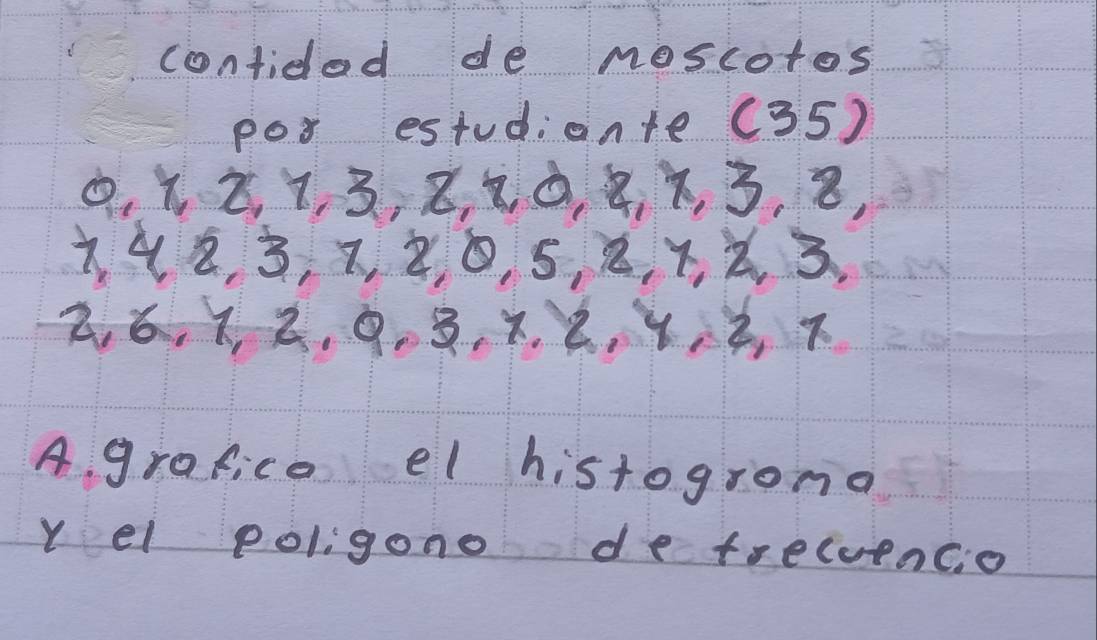 cantidad de mascotas
por estudiante (35)
0, 1, 2, 1, 3, 2, 1, 0, 2, 1, 3, 2,
1, 4, 2, 3, 1, 2, 0, 5, 2, 1, 2, 3,
2, 6, 1, 2, 0, 3, 1, 2, 4, 2, 1.
A. grafica el histograma
y el poligono de frecuencia